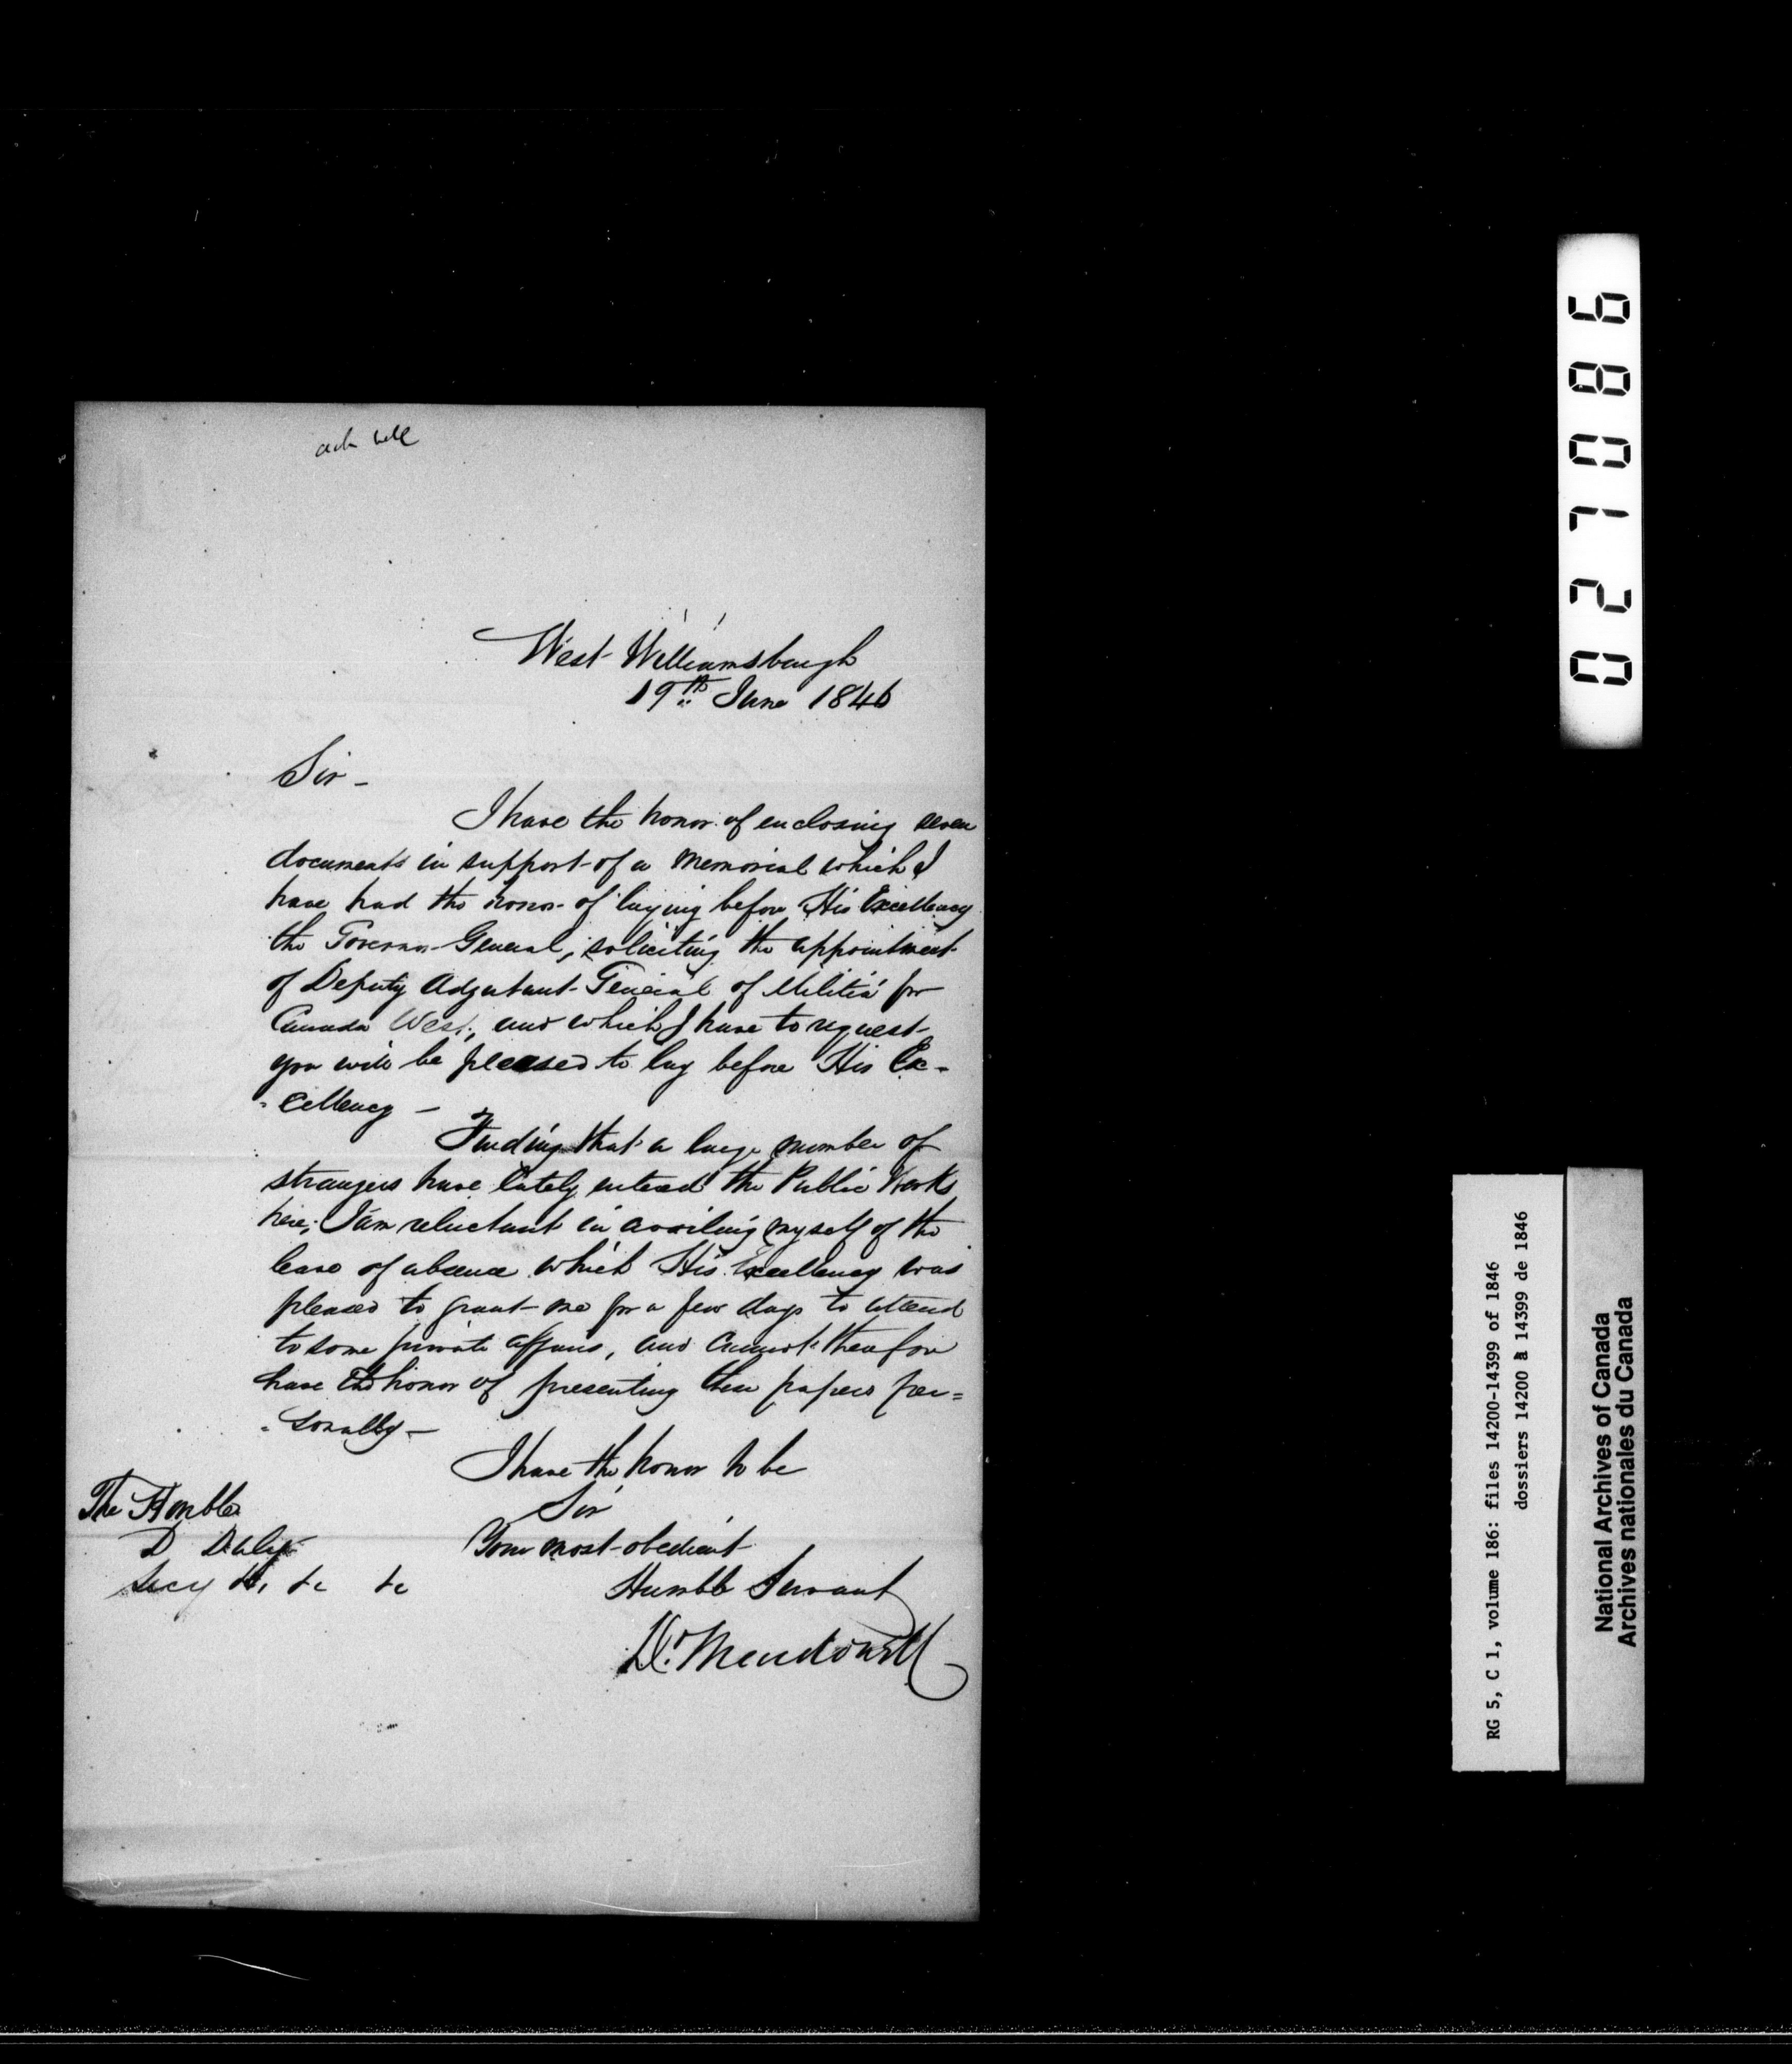 West Williamsburgh
19th June 1846
Sir -
I have the honor of enclosing seven
documents in support of a Memorial which I
have had the honor of laying before His Excellency
the Governor General, soliciting the appointment
of Deputy Adjutant General of Militia for
Canada West, and which I have to request
you will be pleased to lay before His Ex-
-cellency -
Finding that a large number of
strangers have lately entered the Public Works
here, I am reluctant in availing myself of the
leave of absence which His Excellency was
pleased to grant me for a few days to attend
to some private affairs, and cannot therefore
have the honor of presenting these papers per=
-sonally -
I have the honor to be
Sir
Your most obedient
Humble Servant
The Honble
D Daly
Secy &c &c &c
027086
RG 5, C 1, volume 186: files 14200-14399 of 1846
dossiers 14200 à 14399 de 1846
National Archives of Canada
Archives nationales du Canada